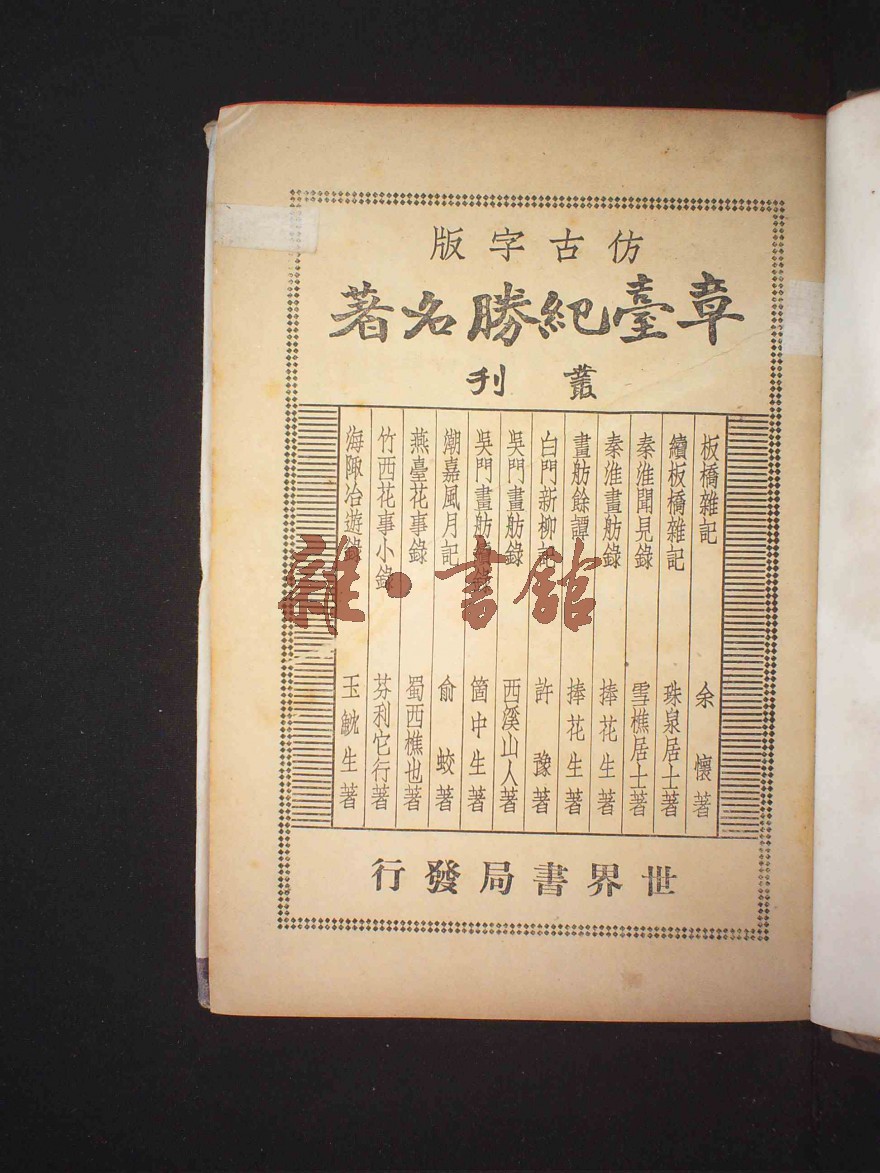 仿古字版
章臺紀勝名著
叢刊
板橋雜記 余懷著
續板橋雜記 珠泉居士著
秦淮聞見錄 雪樵居士著
秦淮畫舫錄 捧花生著
畫舫餘譚 捧花生著
白門新柳記 許豫著
吳門畫舫錄 西溪山人著
吳門畫舫續錄 箇中生著
潮嘉風月記 俞蛟著
燕臺花事錄 蜀西樵也著
竹西花事小錄 芬利它行著
海陬冶遊錄 玉魫生著
世界書局發行
雜·書館